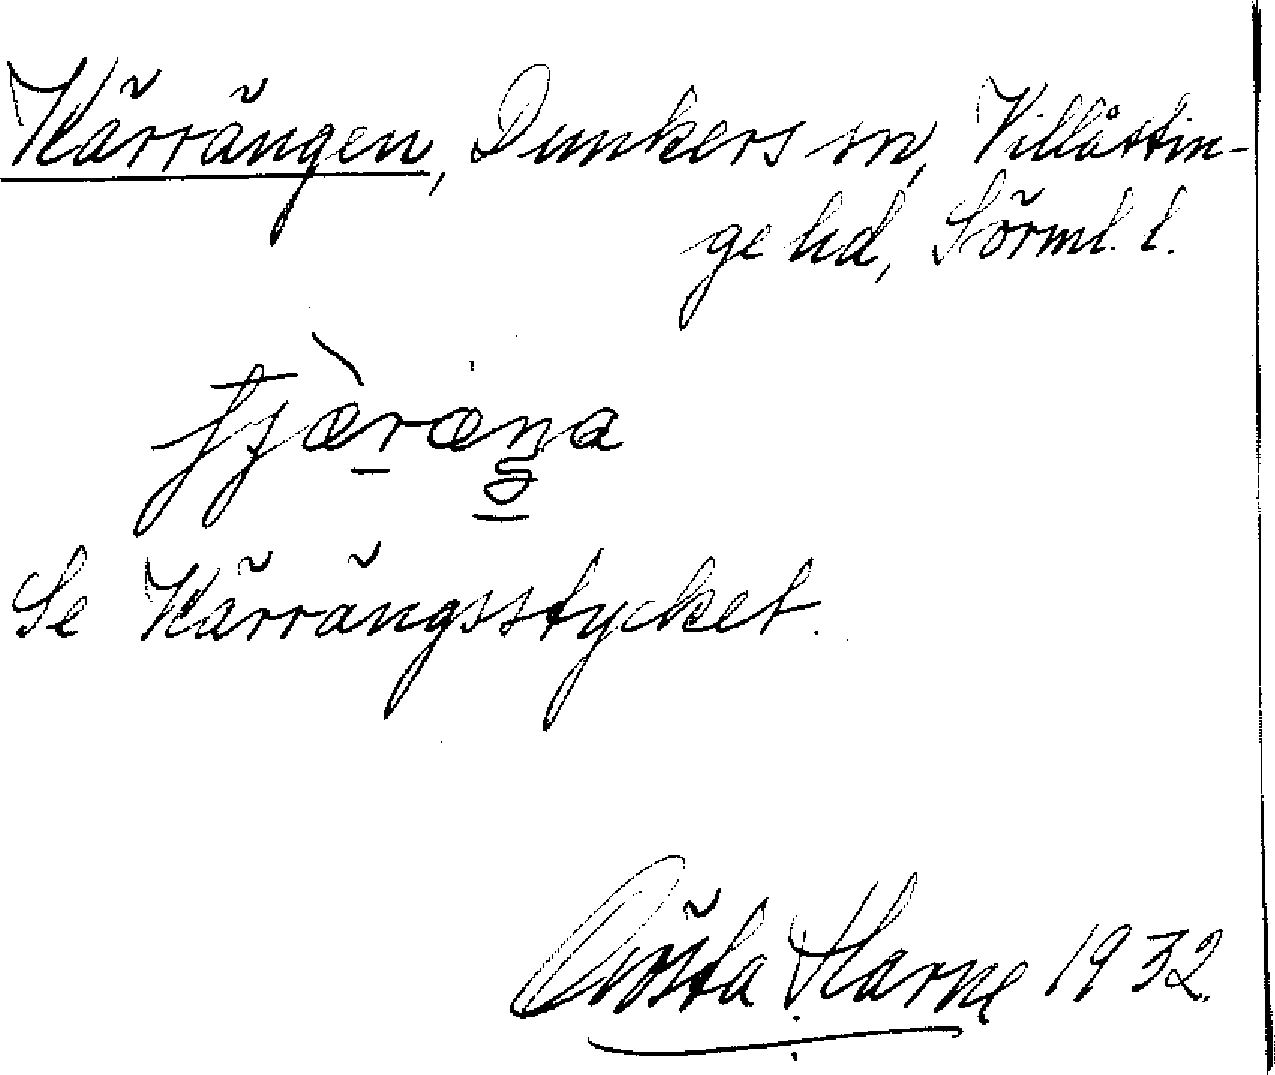 Kärrängen, Dunkers sn, Villåttin-
ge hd, Sörml. l.
tjæ̀ræŋa
Se Kärrängsstycket.
Gösta Harne 1932.